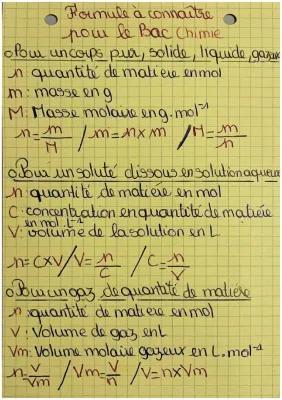 Formule à connaître
pour le Bac Chimie
o Pour un corps pur, solide, liquide, gazeux
n: quantité de matiere en mol
m: masse en g
M: Masse molaire en g.mol⁻¹
n = m/M / m = n x m / M = m/n
o Pour un soluté dissous en solution aqueuse
n: quantité de matiere en mol
C: concentration en quantité de matière
en mol.L⁻¹
V: volume de la solution en L
n = C x V / V = n/C / C = n/V
o Pour un gaz de quantité de matière
n: quantité de matiere en mol
V: Volume de gaz en L
Vm: Volume molaire gazeux en L.mol⁻¹
n = V/Vm / Vm = V/n / V = n x Vm